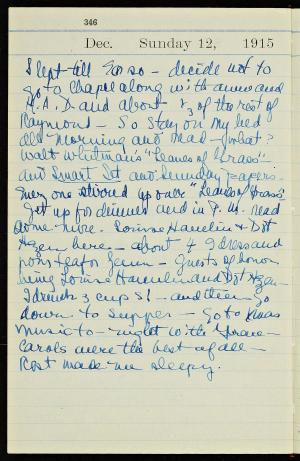 346
Dec. Sunday 12, 1915
Slept till 9 or so – decide not to
go to chapel along with and
H.A.D. and about 2/3 of the rest of
Raymond – So stay on my bed
all morning and read – what?
Walt Whitman's "Leaves of Grass" –
and Smart Set and Sunday papers –
Every one stirred up over "Leaves of Grass"
Get up for dinner and in P.M. read
some more. Louise Hamlin & Dot
here – about 4 I dress and
pour tea for – Guests of honor
being Louise Hamlin and Dot
I drink 3 cups! – and then go
down to supper – Go to Xmas
music to-night with the –
Carols were the best of all –
Rest made me sleepy.